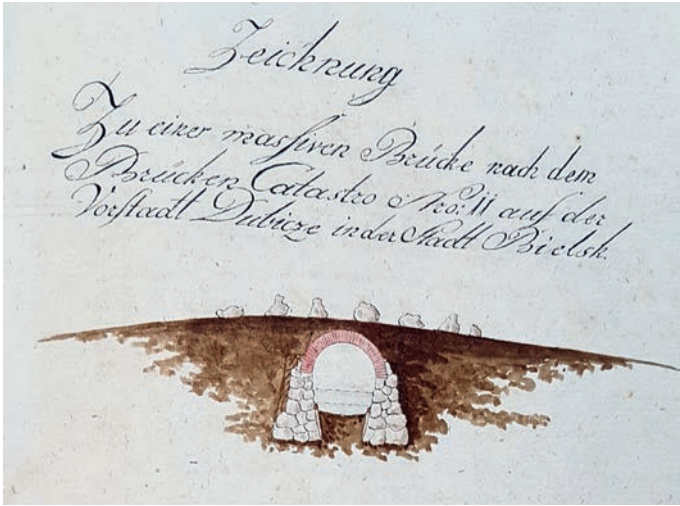 Zeichnung
Zu einer massiven Brücke nach dem
Brücken Catastro Nro: 11 auf der
Vorstadt Dubicze in der Stadt Bielsk.